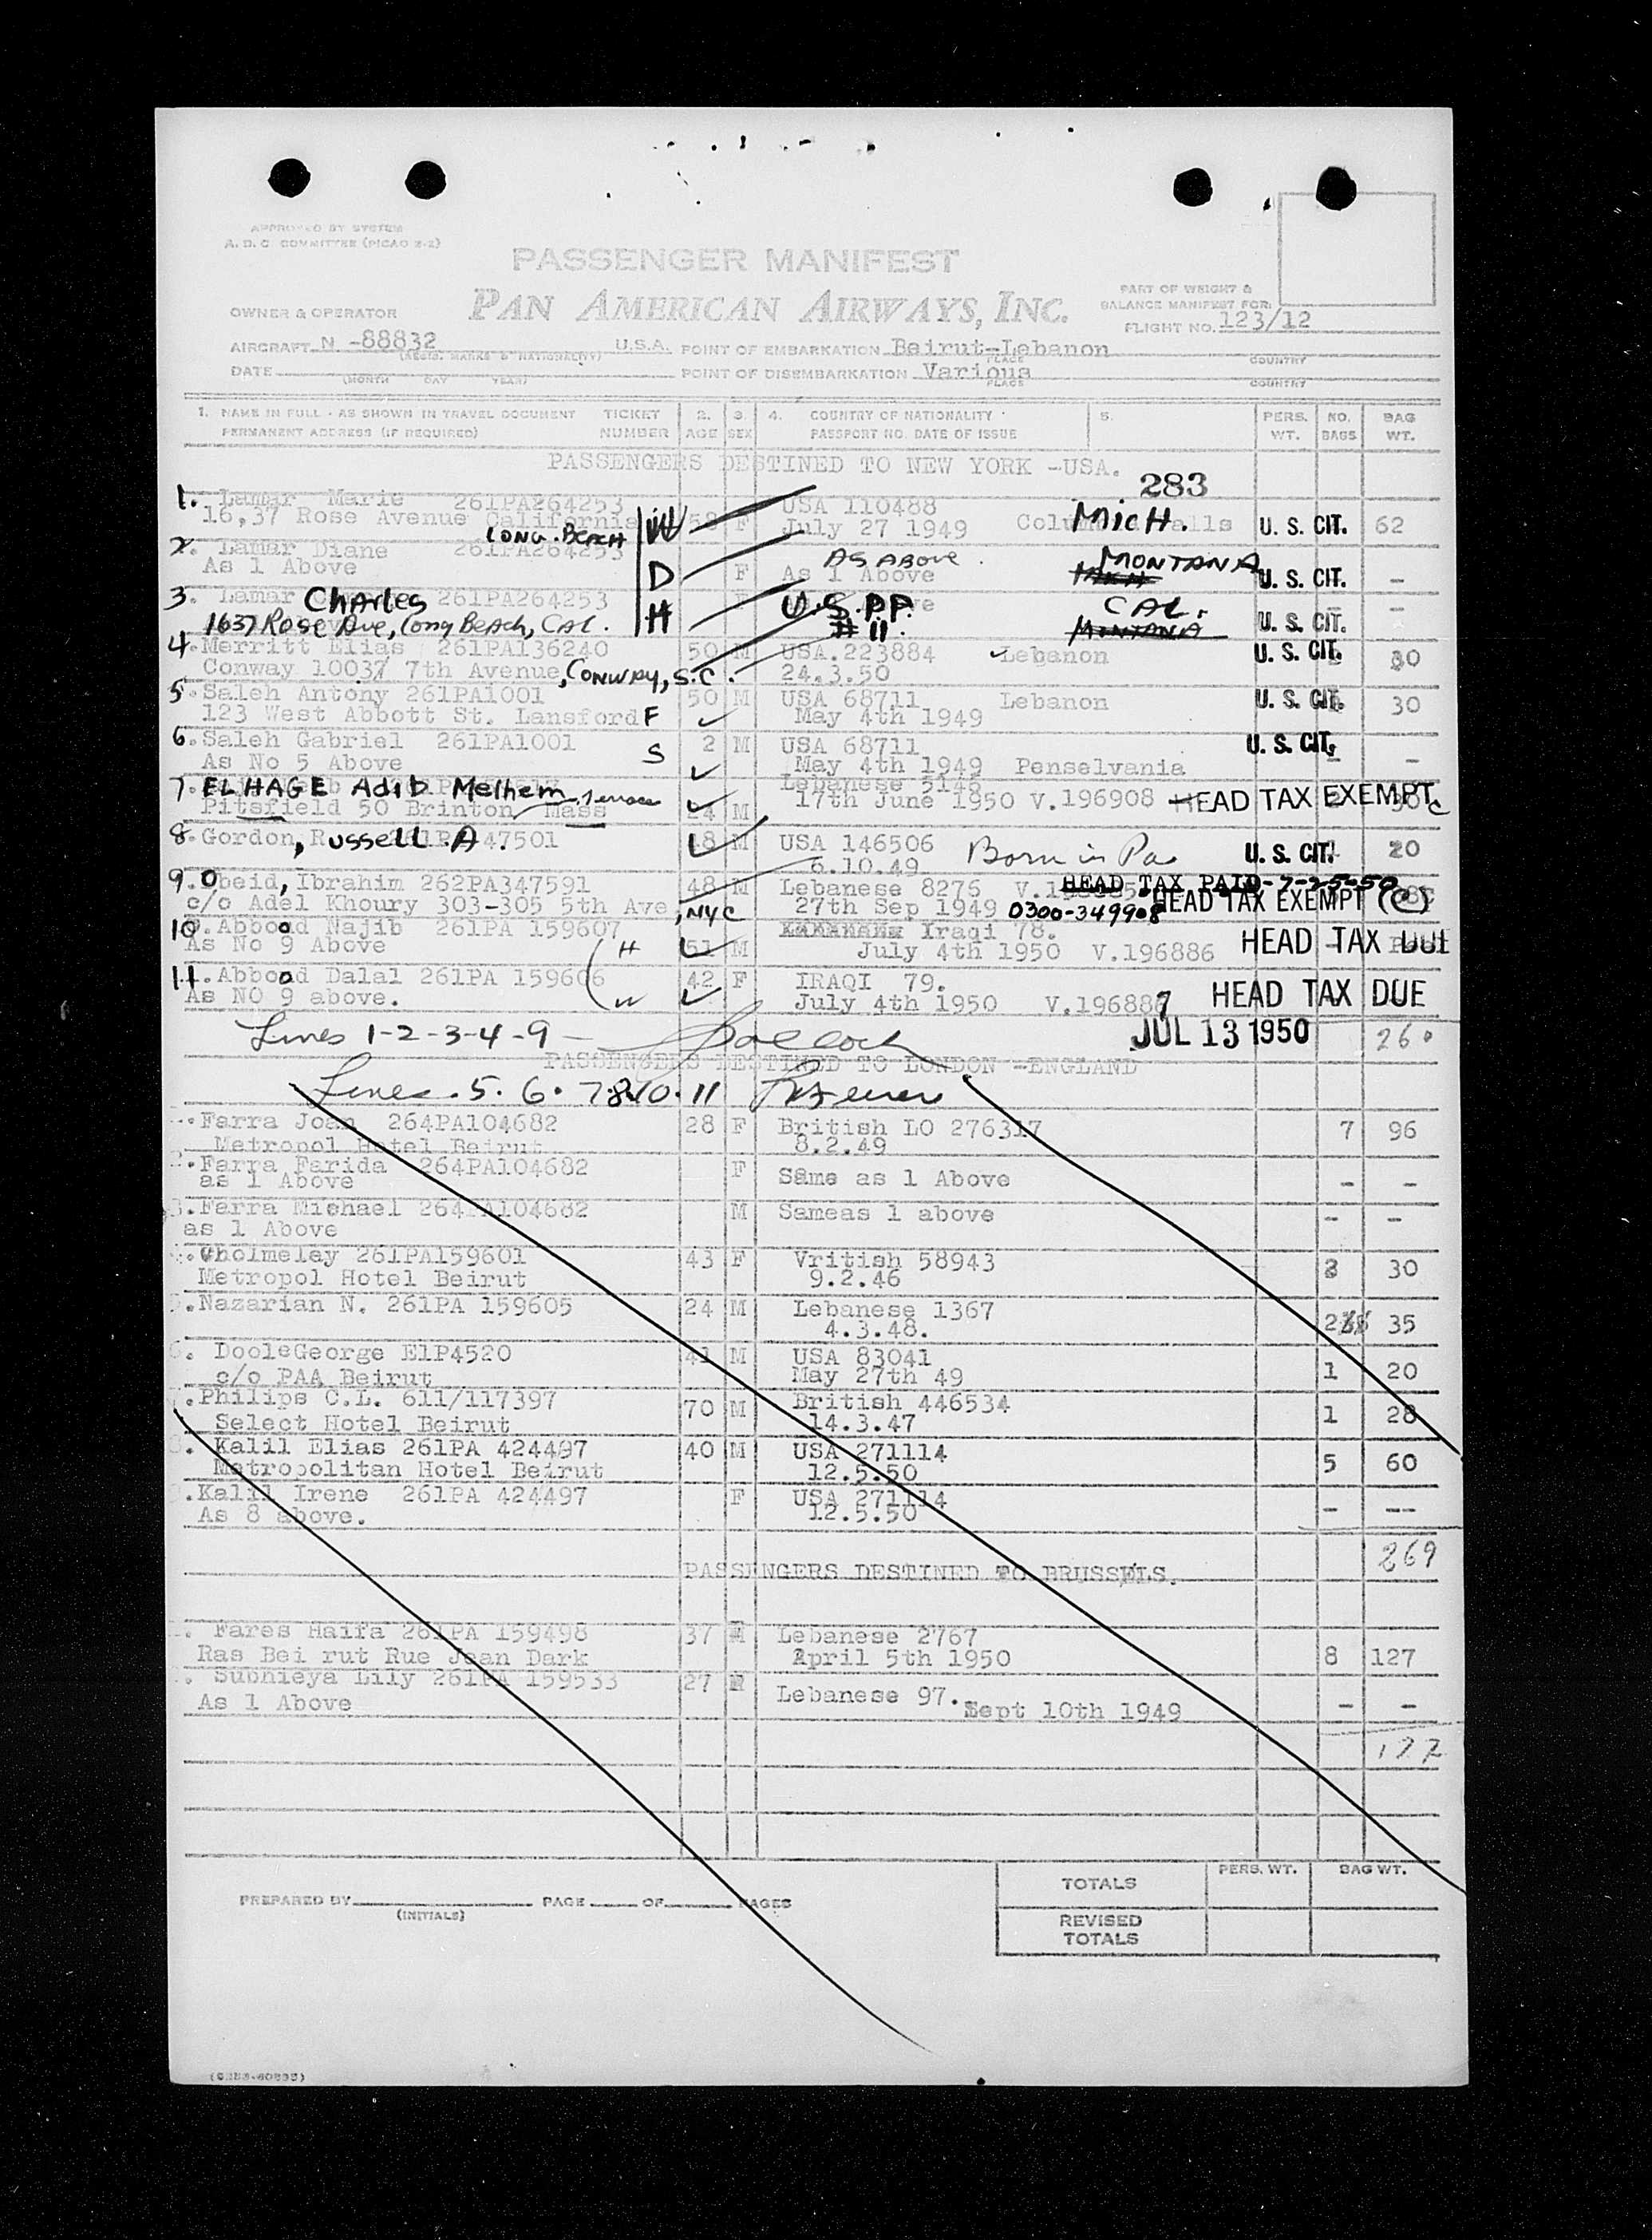 APPROVED BY SYSTEM
A. D. C. COMMITTEE (PICAO 2-2)
PASSENGER MANIFEST
PAN AMERICAN AIRWAYS, INC.
PART OF WEIGHT &
BALANCE MANIFEST FOR:
OWNER & OPERATOR
FLIGHT NO. 123/12
AIRCRAFT N -88832 U.S.A. POINT OF EMBARKATION Beirut-Lebanon
(REGIS. MARKS & NATIONALITY) PLACE COUNTRY
DATE POINT OF DISEMBARKATION Various
(MONTH DAY YEAR) PLACE COUNTRY
1. NAME IN FULL - AS SHOWN IN TRAVEL DOCUMENT TICKET 2. 3. 4. COUNTRY OF NATIONALITY 5. PERS. NO. BAG
PERMANENT ADDRESS (IF REQUIRED) NUMBER AGE SEX PASSPORT NO. DATE OF ISSUE WT. BAGS WT.
PASSENGERS DESTINED TO NEW YORK -USA.
283
1. Lamar Marie 261PA264253 USA 110488
16,37 Rose Avenue California W 58 F July 27 1949 MICH. U. S. CIT. 62
LONG. BEACH
2. Lamar Diane 261PA264253 AS ABOVE. MONTANA
As 1 Above D F As 1 Above U. S. CIT. -
3. Lamar Charles 261PA264253 U.S.P.P. CAL. -
1637 Rose Ave, Long Beach, CAL. H # 11. MONTANA U. S. CIT.
4. Merritt Elias 261PA136240 50 M USA.223884 Lebanon U. S. CIT. 30
Conway 10037 7th Avenue, CONWAY, S.C. 24.3.50
5. Saleh Antony 261PA1001 50 M USA 68711 Lebanon U. S. CIT. 30
123 West Abbott St. Lansford F May 4th 1949
6. Saleh Gabriel 261PA1001 S 2 M USA 68711 U. S. CIT.
As No 5 Above May 4th 1949 Penselvania -
7. EL HAGE Adib Melhem Lebanese 5148
Pitsfield 50 Brinton Terrace Mass 24 M 17th June 1950 V.196908 HEAD TAX EXEMPT C
8. Gordon, Russell A. 47501 18 M USA 146506 Born in Pa U. S. CIT. 20
6.10.49
9. Obeid, Ibrahim 262PA347591 48 M Lebanese 8276 HEAD TAX PAID-7-25-50
c/o Adel Khoury 303-305 5th Ave, NYC 27th Sep 1949 0300-349908 HEAD TAX EXEMPT (C)
10. Abbood Najib 261PA 159607 Iraqi 78.
As No 9 Above H 51 M July 4th 1950 V.196886 HEAD TAX DUE
11. Abbood Dalal 261PA 159606 42 F IRAQI 79.
As NO 9 above. W July 4th 1950 V.196887 HEAD TAX DUE
Lines 1-2-3-4-9 - JUL 13 1950 260
PASSENGERS DESTINED TO LONDON -ENGLAND
Lines. 5. 6. 7. 8. 10. 11
Farra Joan 264PA104682 28 F British LO 276317 7 96
Metropol Hotel Beirut 8.2.49
2. Farra Farida 264PA104682 F Same as 1 Above - -
as 1 Above
3. Farra Michael 264PA104682 M Sameas 1 above - -
as 1 Above
Cholmeley 261PA159601 43 F Vritish 58943 30
Metropol Hotel Beirut 9.2.46
5. Nazarian N. 261PA 159605 24 M Lebanese 1367 35
4.3.48.
6. DooleGeorge E1P4520 41 M USA 83041 1 20
c/o PAA Beirut May 27th 49
Philips C.L. 611/117397 70 M British 446534 1 28
Select Hotel Beirut 14.3.47
8. Kalil Elias 261PA 424497 40 M USA 271114 5 60
Metropolitan Hotel Beirut 12.5.50
9. Kalil Irene 261PA 424497 F USA 271114 - --
As 8 above. 12.5.50
269
PASSENGERS DESTINED TO BRUSSELS.
Fares Haifa 261PA 159498 37 Lebanese 2767
Ras Bei rut Rue Jean Dark April 5th 1950 8 127
Subhieya Lily 261PA 159533 27 Lebanese 97.
As 1 Above Sept 10th 1949 - -
PERS. WT. BAG WT.
TOTALS
PREPARED BY PAGE OF PAGES
(INITIALS)
REVISED
TOTALS